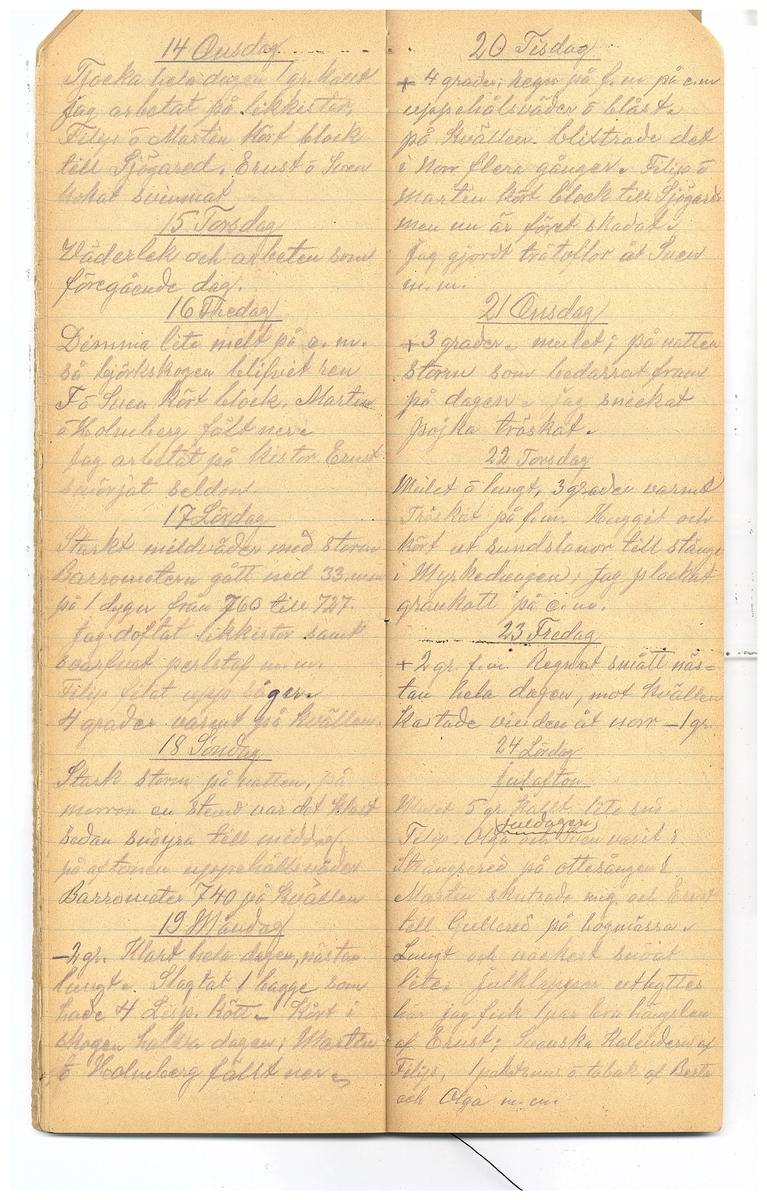 14 Onsdag
Tjocka hela dagen 1 gr. kallt
Jag arbetat på likkistor,
Filip o Martin kört block
till Sjögared. Ernst o Sven
svinmat
15 Torsdag
Väderlek och arbeten som
föregående dag.
16 Fredag
Dimma lite mildt på e.m.
så björkskogen blifvit ren
F o Sven kört block. Martin
o Holmberg fält ner.
Jag arbetat på kistor Ernst
smörjat seldon.
17 Lördag
Starkt mildväder med storm
Barrometern gått ned 33. mm
på 1 dygn från 760 till 727.
Jag doftat likkistor samt
svarfvat perlstaf m.m.
Filip filat upp sågen.
4 grader varmt på kvällen.
18 Söndag
Stark storm på natten, på
morron en stund var det klart
sedan snöyra till middag
på aftonen uppehållsväder
Barrometer 740 på kvällen
19 Måndag
-2 gr. Klart hela dagen, nästan
lungt. Slagtat 1 bagge som
hade 4 Lisp. kött. Kört i
skogen halfva dagen; Martin
o Holmberg fällt ner.
20 Tisdag
+ 4 grader; regn på f.m. på e.m
uppehålsväder o blåst.
på kvällen blixtrade det
i Norr flera gånger. Filip o
Martin kört block till Sjögared
men nu är föret skadat.
Jag gjordt trätoflor åt Sven
m.m.
21 Onsdag
+3 grader. mulet; på natten
storm som bedarrat fram
på dagen. jag snickat
pojka tröskat.
22 Torsdag
Mulet o lungt, 3 grader varmt
Tröskat på f.m. Huggit och
kört ut sundslanor till stängs
i Myrkedragen; Jag plockat
grankott på e.m.
23 Fredag
+2 gr. f.m. Regnat smått näs=
tan hela dagen, mot kvällen
kastade vinden åt norr -1 gr.
24 Lördag
Julafton
Mulet 5 gr. kallt lite snö
juldagen
Filip. Olga och Sven varit i
Strängsered på ottesången &
Martin skutsade mig och Ernst
till Gullered på högmässa.
Lungt och vackert snöat
lite. julklappar utbyttes
här jag fick 1 par bra hängslen
af Ernst; Svenska Kalendern af
Filip, 1 snus o tobak af Berta
och Olga m.m.